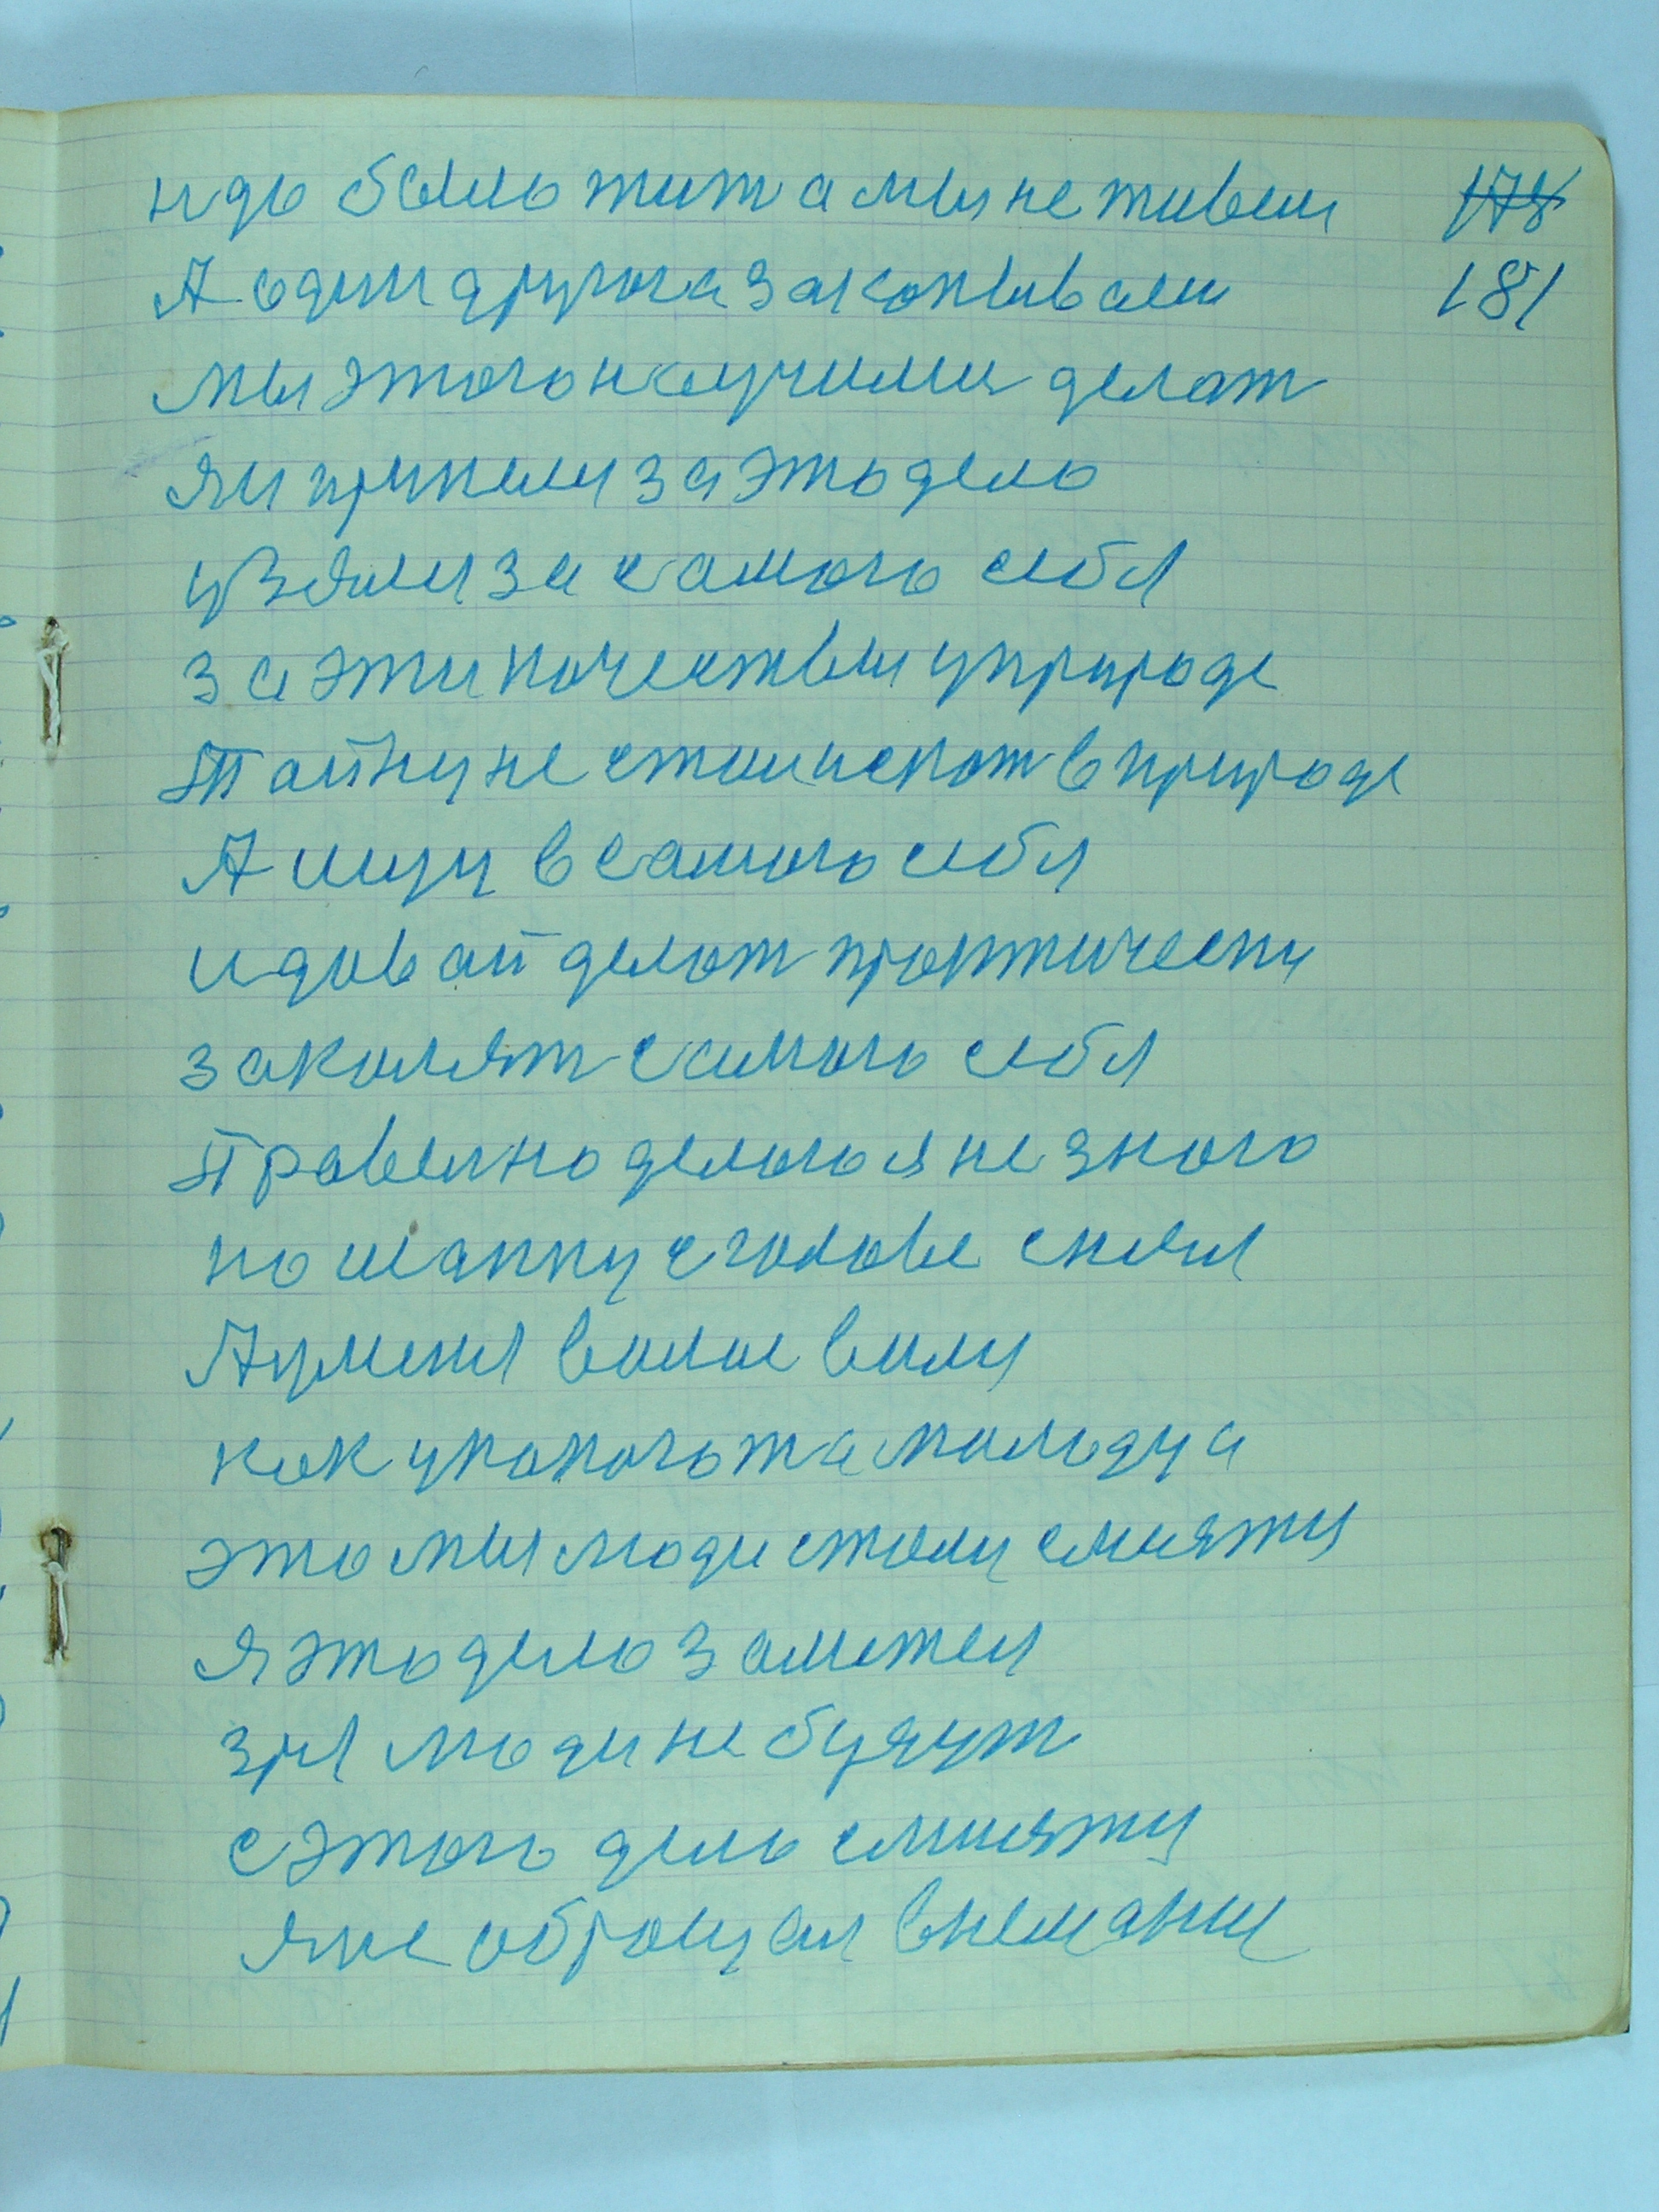 ндо было жит а мы не живем 178
А один другога закопывали 181
мы этого научили делат
я и принели за это дело
узяли за самого себя
за эти качествы у природе
Тайну не стал искат в природе
А ищу в самого себя
и давай делат практически
закалят самого себя
Правелно делаю я не знаю
но шапку с голове снял
А у меня волос вилы
как у какого та молодца
это мы люди стали смиятц
я это дело заметил
зря люди не будут
с этого дело смиятц
я не обращал внемание